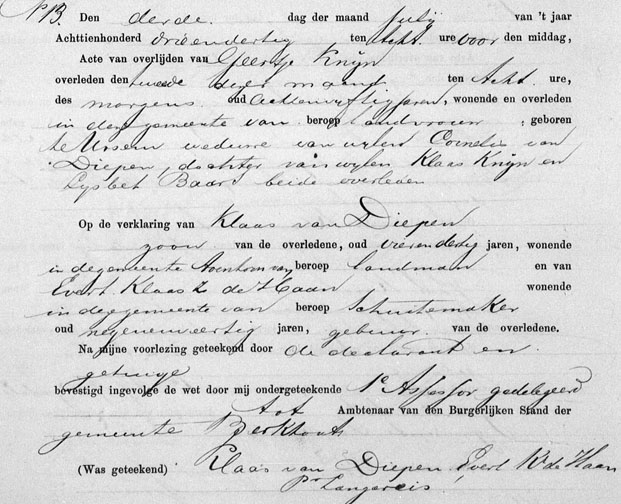 No 13. Den derde. dag der maand July van 't jaar
Achttienhonderd drieendertig ten acht ure voor den middag,
Acte van overlijden van Geertje Knijn
overleden den tweede dezer maand ten Acht ure,
des morgens oud Achtenvijftig jaren, wonende en overleden
in deze gemeente van beroep Landvrouw, geboren
te Ursem weduwe van wylen Cornelis van
Diepen, dochter van wylen Klaas Knijn en
Lysbet Baar beide overleden
Op de verklaring van Klaas van Diepen
zoon van de overledene, oud vierendertig jaren, wonende
in de gemeente Avenhorn van beroep landman en van
Evert Klaasz de Haan wonende
in deze gemeente van beroep Schuitemaker
oud negenenveertig jaren, gebuur. van de overledene.
Na mijne voorlezing geteekend door de declarant en
getuige
bevestigd ingevolge de wet door mij ondergeteekende 1e Assessor gedelegeerd
tot Ambtenaar van den Burgerlijken Stand der
gemeente Berkhout
(Was geteekend) Klaas van Diepen, Evert Kz de Haan
Pr Langereis